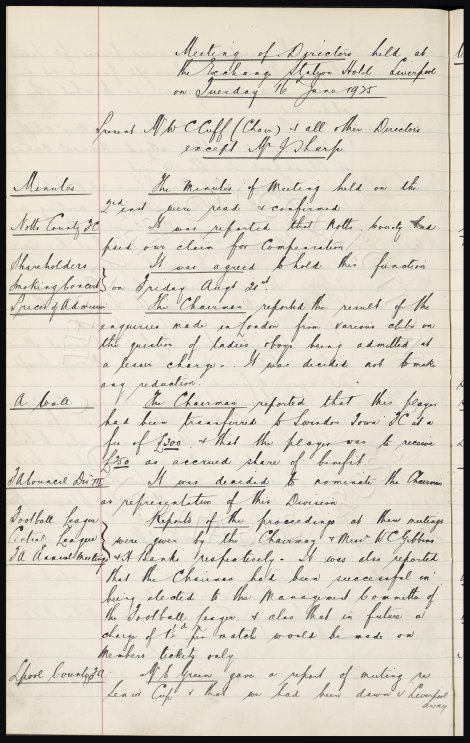 Meeting of Directors held at
the Exchange Station Hotel Liverpool
on Tuesday 16th June 1925
Present Mr W C Cuff (Chair) & all other Directors
except Mr J Sharp
Minutes The Minutes of Meeting held on the
2nd inst were read & confirmed
Notts County FC It was reported that Notts County had
paid our claim for Compensation
Shareholders It was agreed to hold this function
Smoking Concert on Friday Augt 21st.
Prices of Admission The Chairman reported the result of the
enquiries made in London from various clubs on
the question of ladies & boys being admitted at
a lesser charge. It was decided not to make
any reduction.
A Wall The Chairman reported that this player
had been transferred to Swindon Town FC at a
fee of £200 & that the player was to receive
£250 as accrued share of benefit.
FA Council Div III It was decided to nominate the Chairman
as representative of this Division
Football League Reports of the proceedings at these meetings
Central League were given by the Chairman & Messrs W C Gibbins
FA Annual Meetings & A Banks respectively. It was also reported
that the Chairman had been successful in
being elected to the Management Committee of
the Football League & also that in future a
charge of 1/- per match would be made on
Members tickets only
Lpool County FA Mr E Green gave a report of meeting re
Senior Cup & that we had been drawn v Liverpool
away